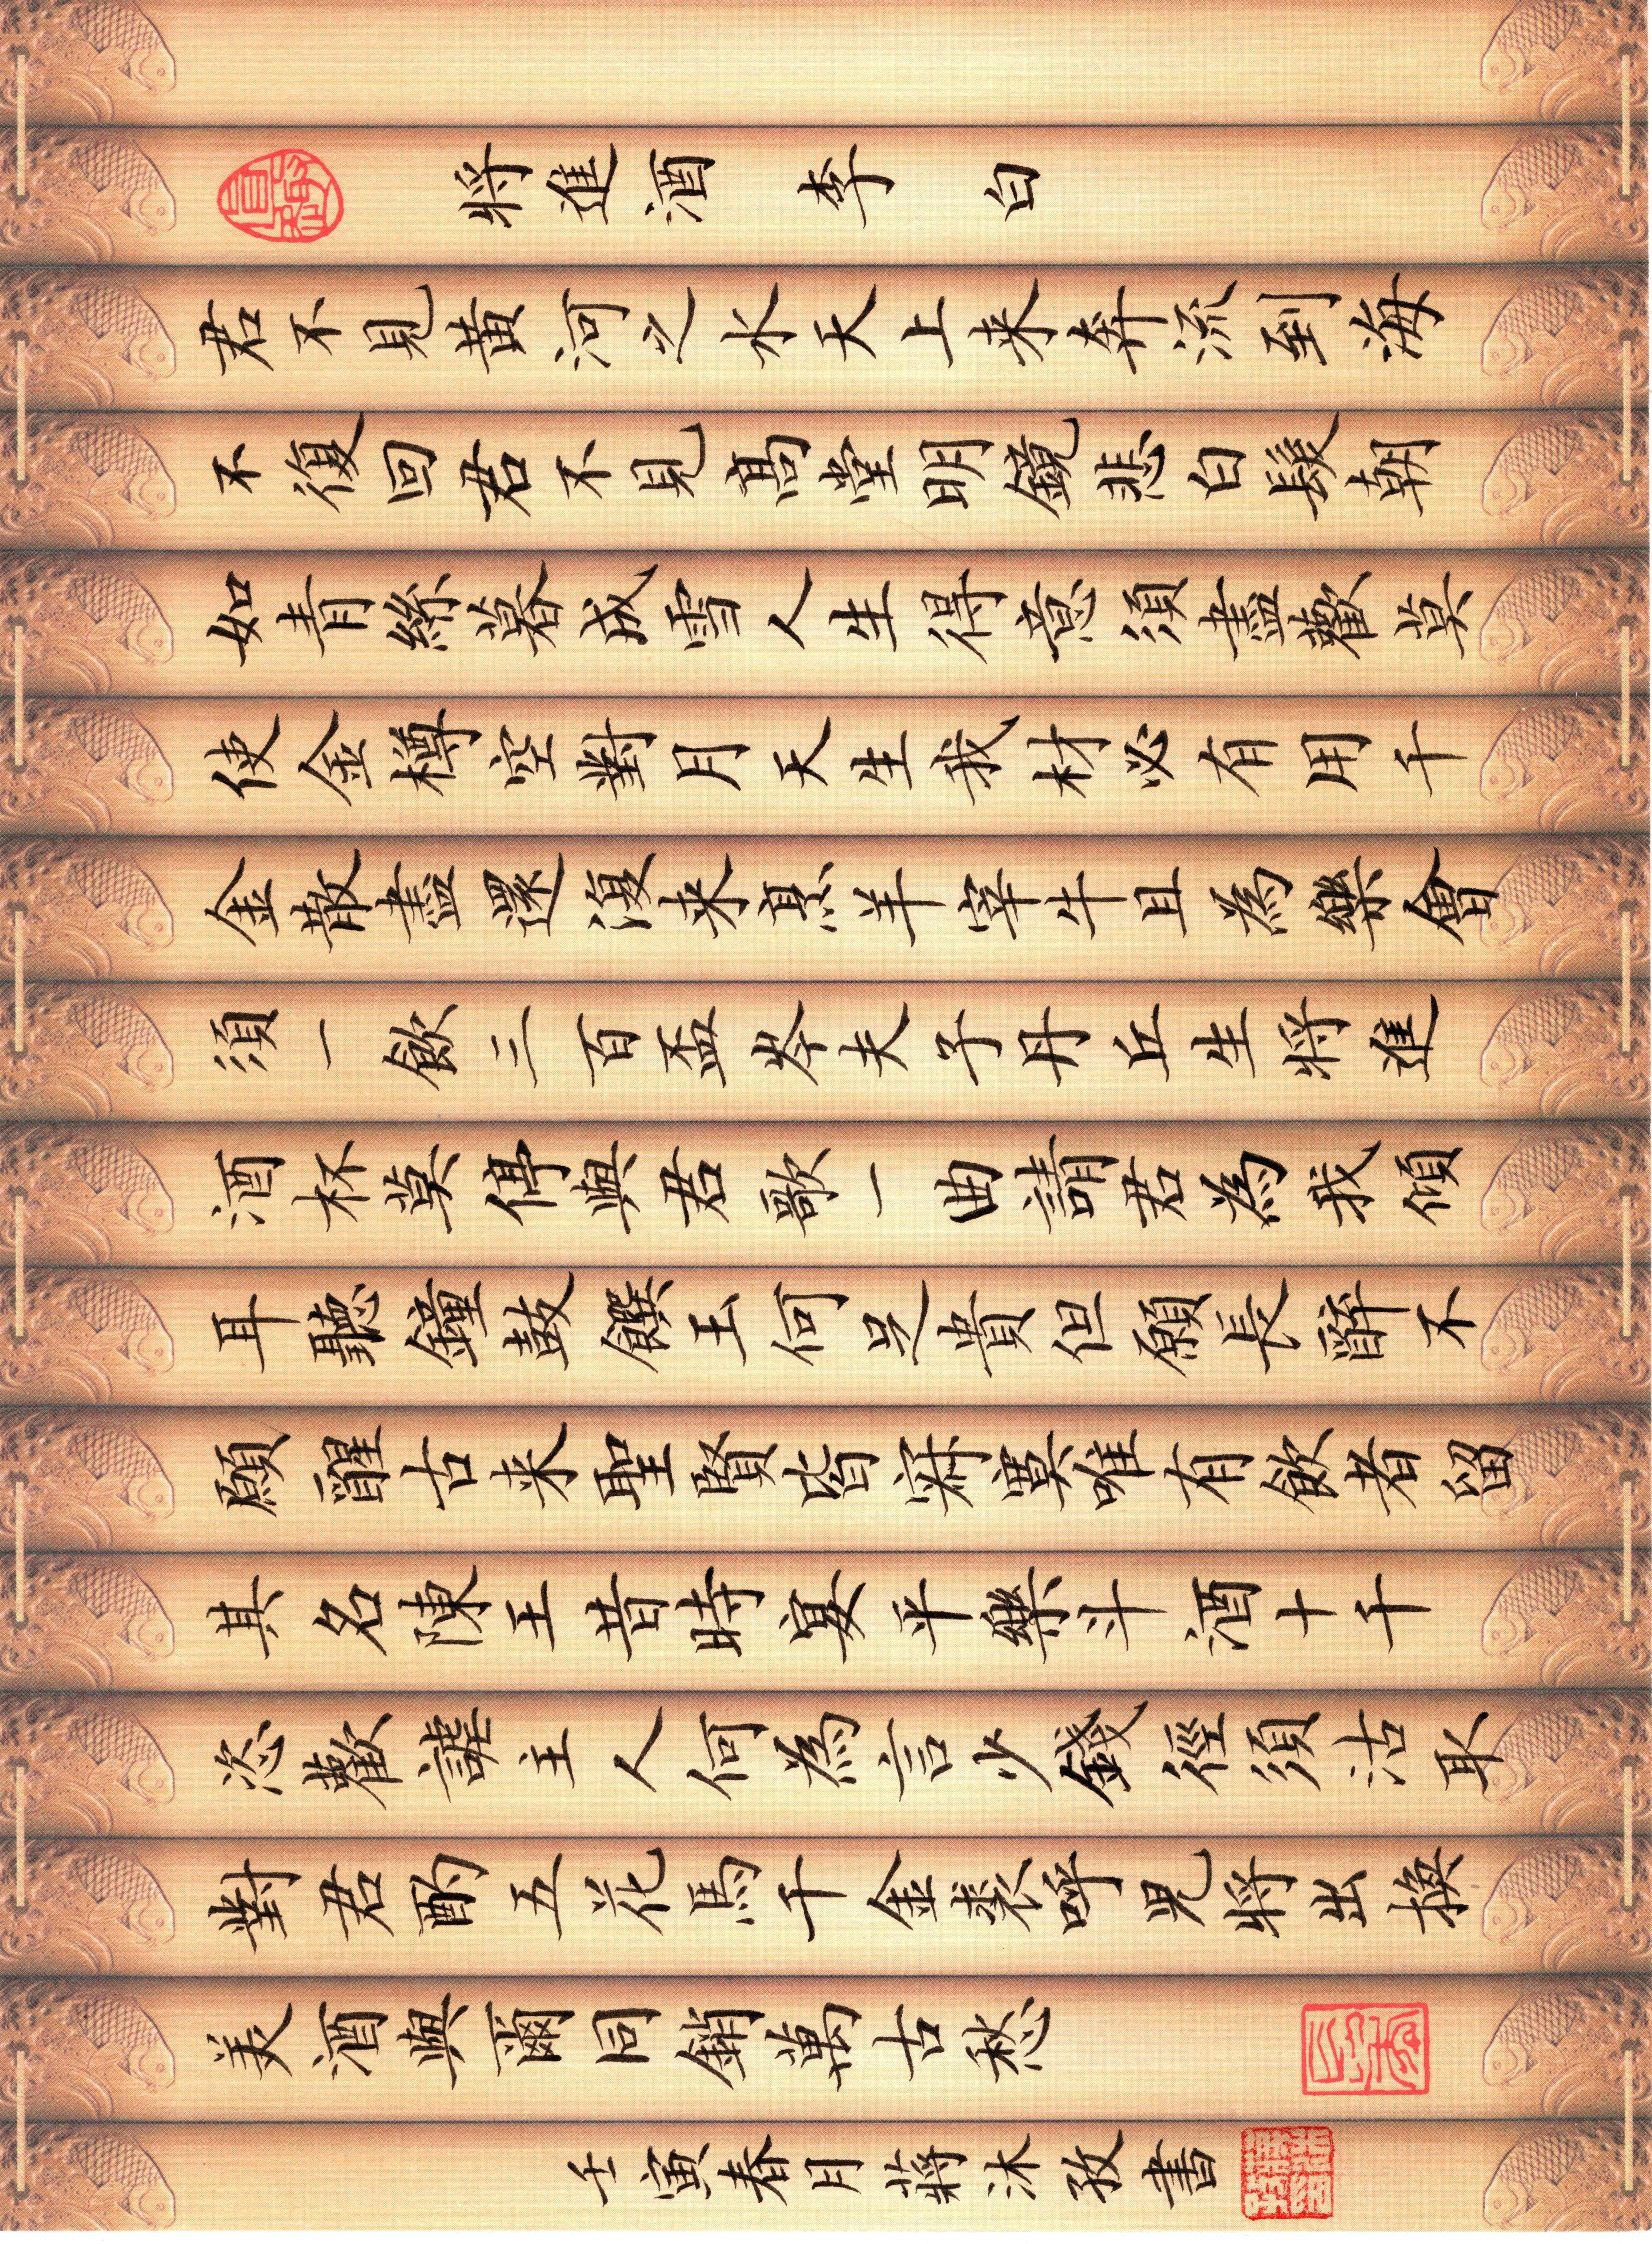 將進酒 李白
君不見黄河之水天上来奔流到海
不復回君不見高堂明鏡悲白髮朝
如青絲暮成雪人生得意須盡歡莫
使金樽空對月天生我材必有用千
金散盡還復来烹羊宰牛且為樂會
須一飲三百盃岑夫子丹丘生將進
酒杯莫停與君歌一曲請君為我傾
耳聽鐘鼓饌玉何足貴但願長醉不
願醒古来聖賢皆寂寞唯有飲者留
其名陳王昔時宴平樂斗酒十千
恣歡謔主人何為言少錢徑須沽取
對君酌五花馬千金裘呼兒將出換
美酒與爾同銷萬古愁
壬寅春月蔣沐孜書